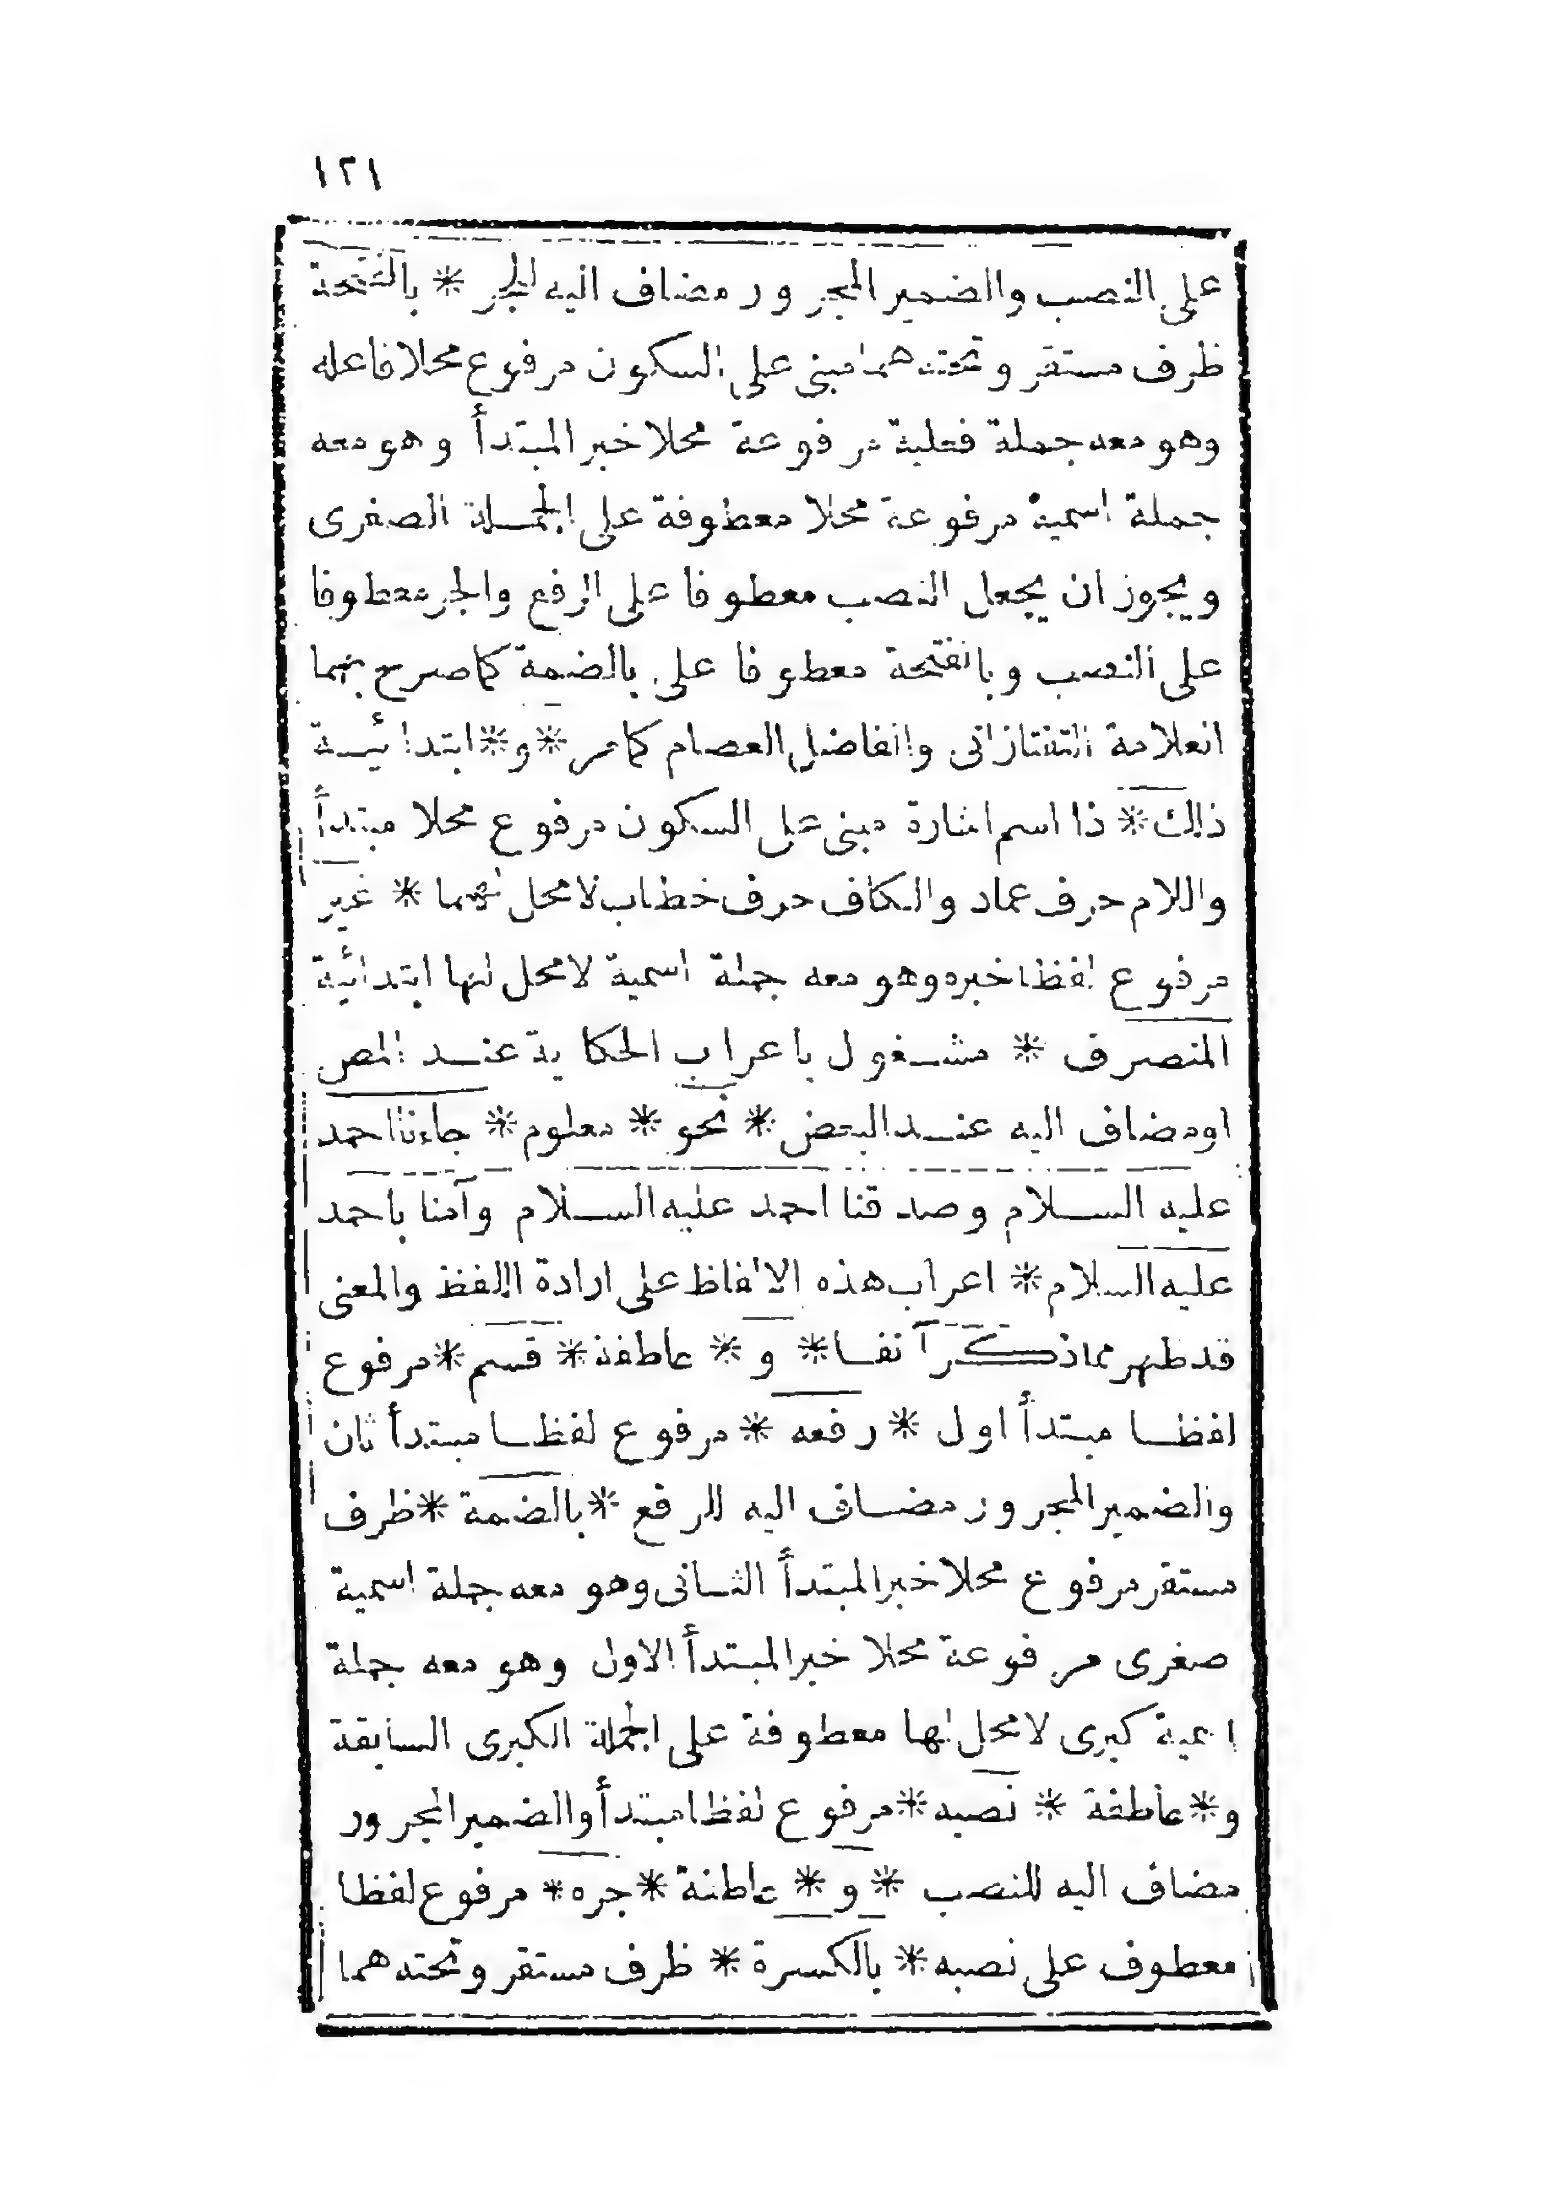 ١٢١
على النصب والضمير المجرور مضاف اليه للجر * بالفتحة
ظرف مستقر وتحته هما مبنى على السكون مرفوع محلا فاعله
وهو معه جملة فعلية مرفوعة محلا خبر المبتدأ وهو معه
جملة اسمية مرفوعة محلا معطوفة على الجملة الصغرى
ويجوز ان يجعل النصب معطوفا على الرفع والجر معطوفا
على النصب وبالفتحة معطوفا على بالضمة كما صرح بهما
العلامة التفتازانى والفاضل العصام كمامر * و * ابتدائية
ذلك * ذا اسم اشارة مبنى على السكون مرفوع محلا مبتدأ
واللام حرف عماد والكاف حرف خطاب لامحل لهما * غير
مرفوع لفظا خبره وهو معه جملة اسمية لامحل لها ابتدائية
المنصرف * مشغول باعراب الحكاية عند المص
اومضاف اليه عند البعض * نحو * معلوم * جاءنا احمد
عليه السلام وصدقنا احمد عليه السلام وآمنا باحمد
عليه السلام * اعراب هذه الالفاظ على ارادة اللفظ والمعنى
قد ظهر مما ذكر آنفا * و * عاطفة * قسم * مرفوع
لفظا مبتدأ اول * رفعه * مرفوع لفظا مبتدأ ثان
والضمير المجرور مضاف اليه للرفع * بالضمة * ظرف
مستقر مرفوع محلا خبر المبتدأ الثانى وهو معه جملة اسمية
صغرى مرفوعة محلا خبر المبتدأ الاول وهو معه جملة
اسمية كبرى لامحل لها معطوفة على الجملة الكبرى السابقة
و * عاطفة * نصبه * مرفوع لفظا مبتدأ والضمير المجرور
مضاف اليه للنصب * و * عاطفة * جره * مرفوع لفظا
معطوف على نصبه * بالكسرة * ظرف مستقر وتحته هما